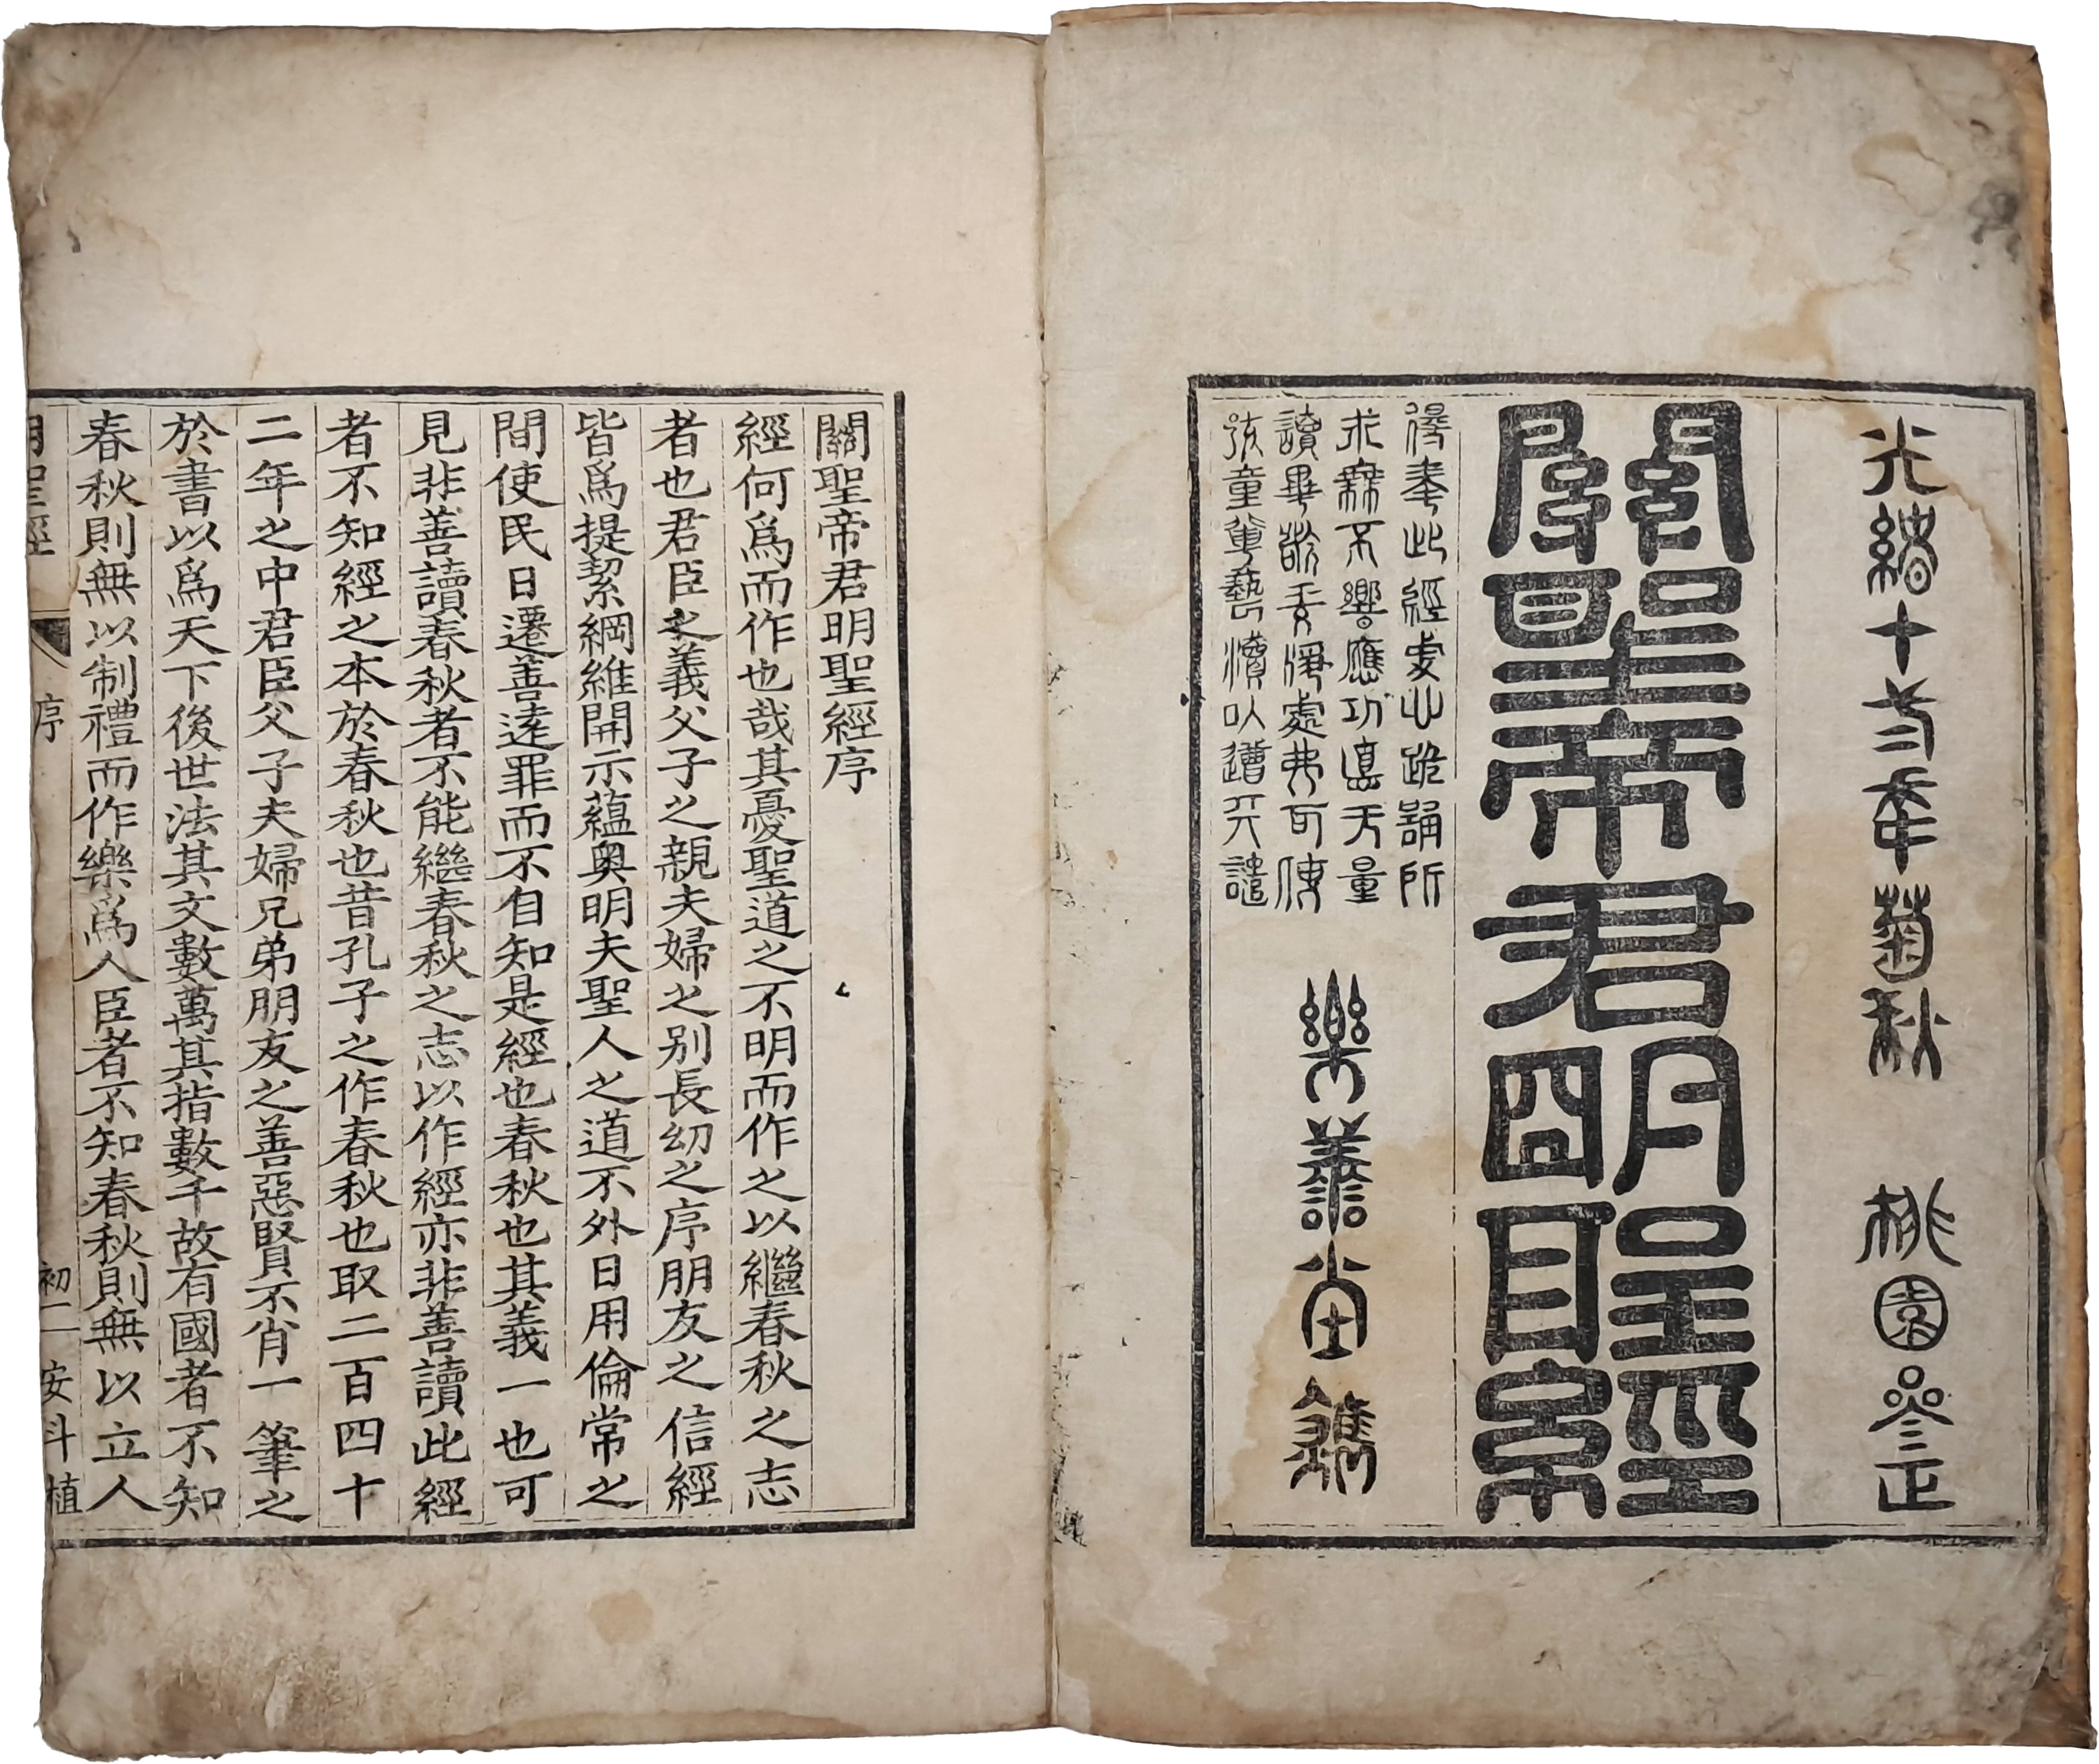 光緒十三年菊秋　桃園叄正
關聖帝君明聖經
得奉此經虔心跪誦所
求無不響應功德无量
讀畢敬妥淨處弗可使
孩童輩褻瀆以遭天譴
樂善堂鐫
關聖帝君明聖經序
經何爲而作也哉其憂聖道之不明而作之以繼春秋之志
者也君臣之義父子之親夫婦之别長幼之序朋友之信經
皆爲提絜綱維開示蘊奥明夫聖人之道不外日用倫常之
間使民日遷善逺罪而不自知是經也春秋也其義一也可
見非善讀春秋者不能繼春秋之志以作經亦非善讀此經
者不知經之本於春秋也昔孔子之作春秋也取二百四十
二年之中君臣父子夫婦兄弟朋友之善惡賢不肖一筆之
於書以爲天下後世法其文數萬其指數千故有國者不知
春秋則無以制禮而作樂爲人臣者不知春秋則無以立人
明聖經　序　初二　安斗植